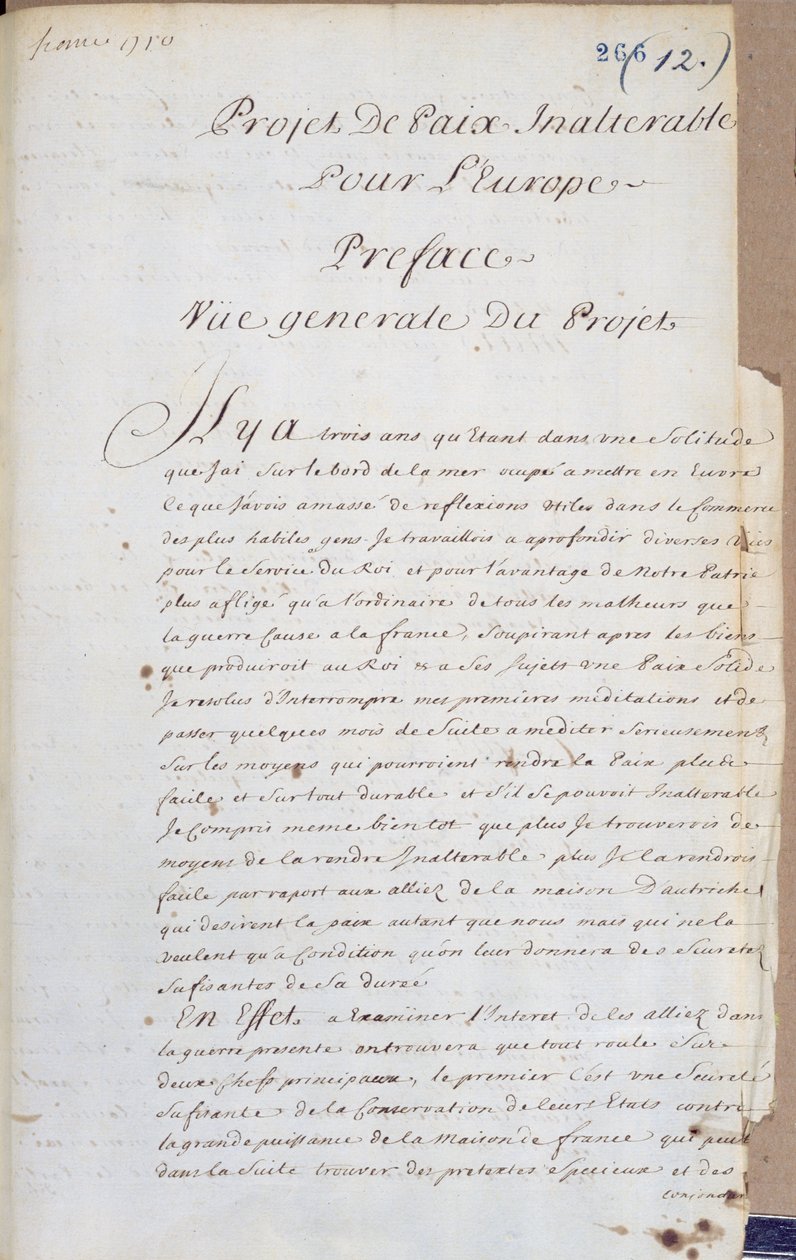 266 (12.)
Projet De Paix Inalterable
Pour L'Europe
Preface
Vüe generale Du Projet
Il y a trois ans qu'Etant dans une Solitude
que J'ai Sur le bord de la mer ocupé a mettre en Euvre
ce que J'avois amassé de reflexions utiles dans le Commerce
des plus habiles gens Je travaillois a aprofondir diverses Vües
pour le Service du Roi et pour l'avantage de Notre Patrie
plus afligé qu'a l'ordinaire de tous les malheurs que
la guerre Cause a la france, Soupirant apres les biens
que produiroit au Roi & a Ses Sujets une Paix Solide
Je resolus d'Interrompre mes premieres meditations et de
passer quelques mois de Suite a mediter Serieusement
Sur les moyens qui pourroient rendre la Paix plus
facile et Sur tout durable et S'il Se pouvoit Inalterable
Je Compris meme bientot que plus Je trouverois de
moyens de la rendre Inalterable plus Je la rendrois
facile par raport aux alliez de la maison D'autriche
qui desirent la paix autant que nous mais qui ne la
veulent qu'a Condition qu'on leur donnera des Seuretez
Sufisantes de Sa dureé
En Effet a Examiner l'Interet de ces alliez dans
la guerre presente on trouvera que tout roule Sur
deux Chefs principaux, le premier C'est une Seureté
Sufisante de la Conservation de leurs Etats contre
la grande puissance de la Maison de france qui peut
dans la Suite trouver des pretextes Specieux et des